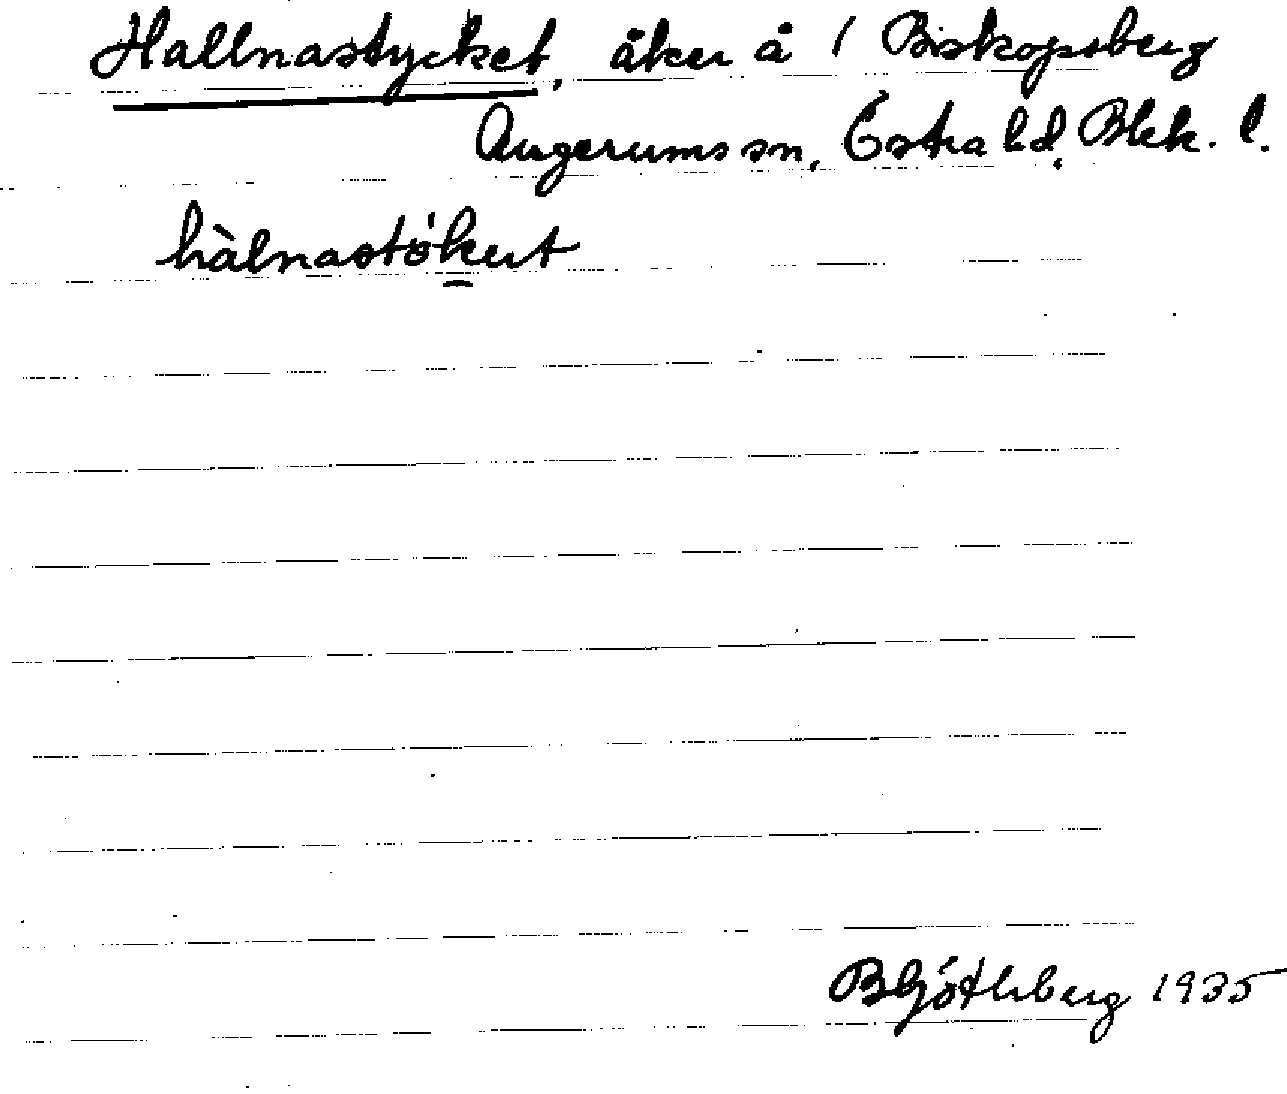 Hallnastycket, åker å 1 Biskopsberg
Augerums sn, Östra hd, Blek. l.
hàlnastö́kət
B Göthberg 1935